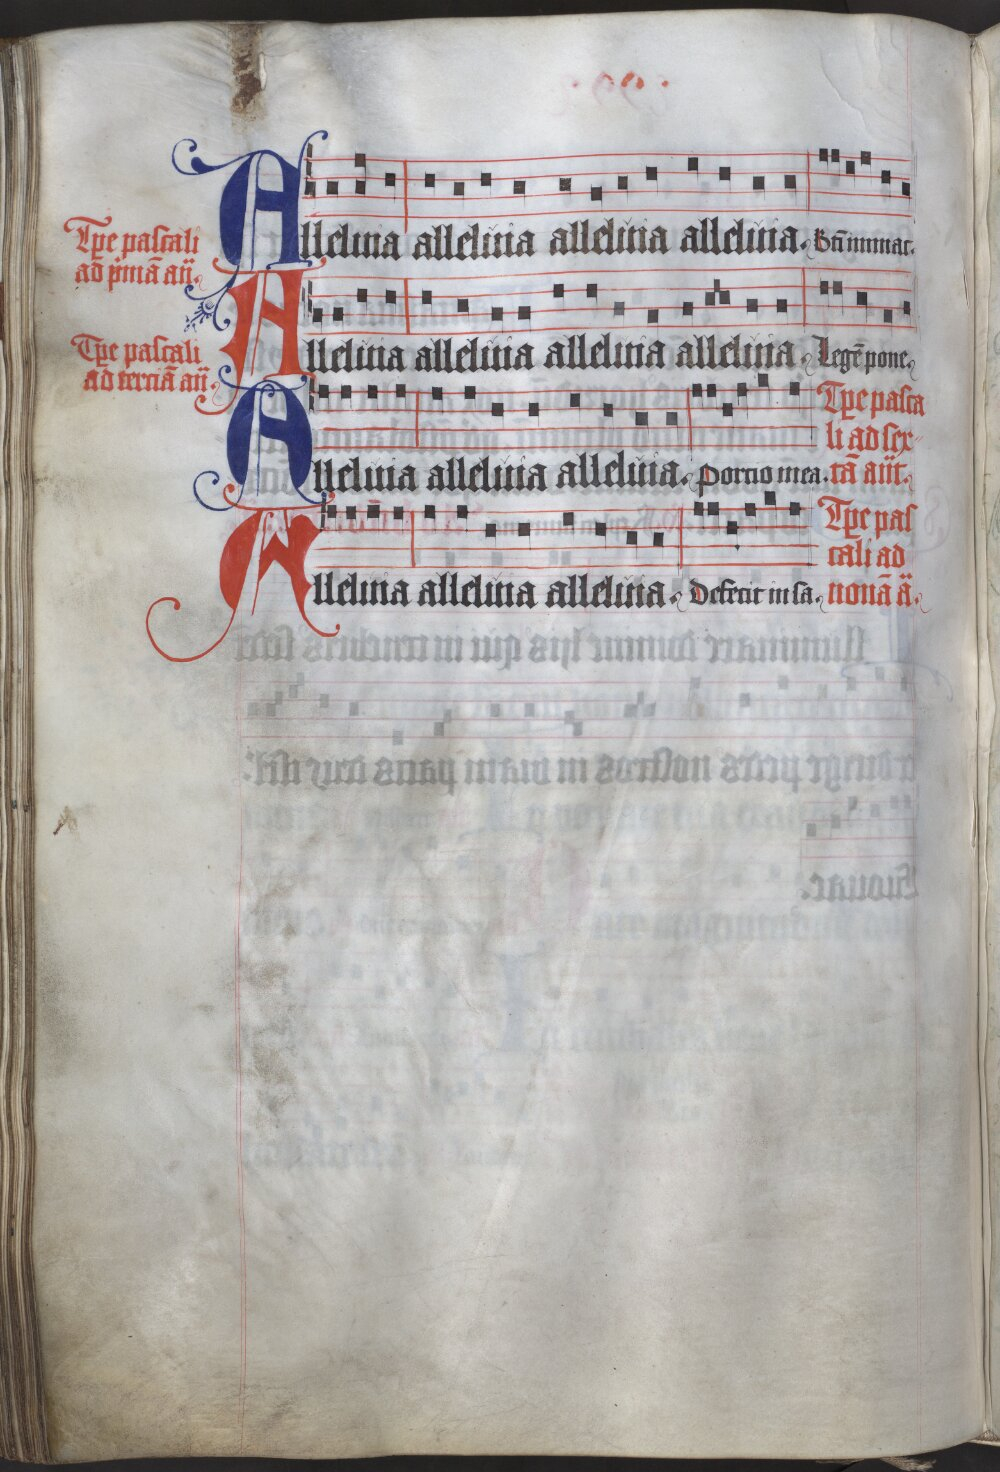 Tp̄e pascali
ad p̄mā añ.
Alleluia alleluia alleluia alleluia. Bt̄i immac.
Tp̄e pascali
ad terciā añ
Alleluia alleluia alleluia alleluia. Legē pone.
Alleluia alleluia alleluia. Portio mea.
Tp̄e pasca
li ad sex
tā añt.
Alleluia alleluia alleluia. Defecit in sa.
Tp̄e pas
cali ad
nonā ā.